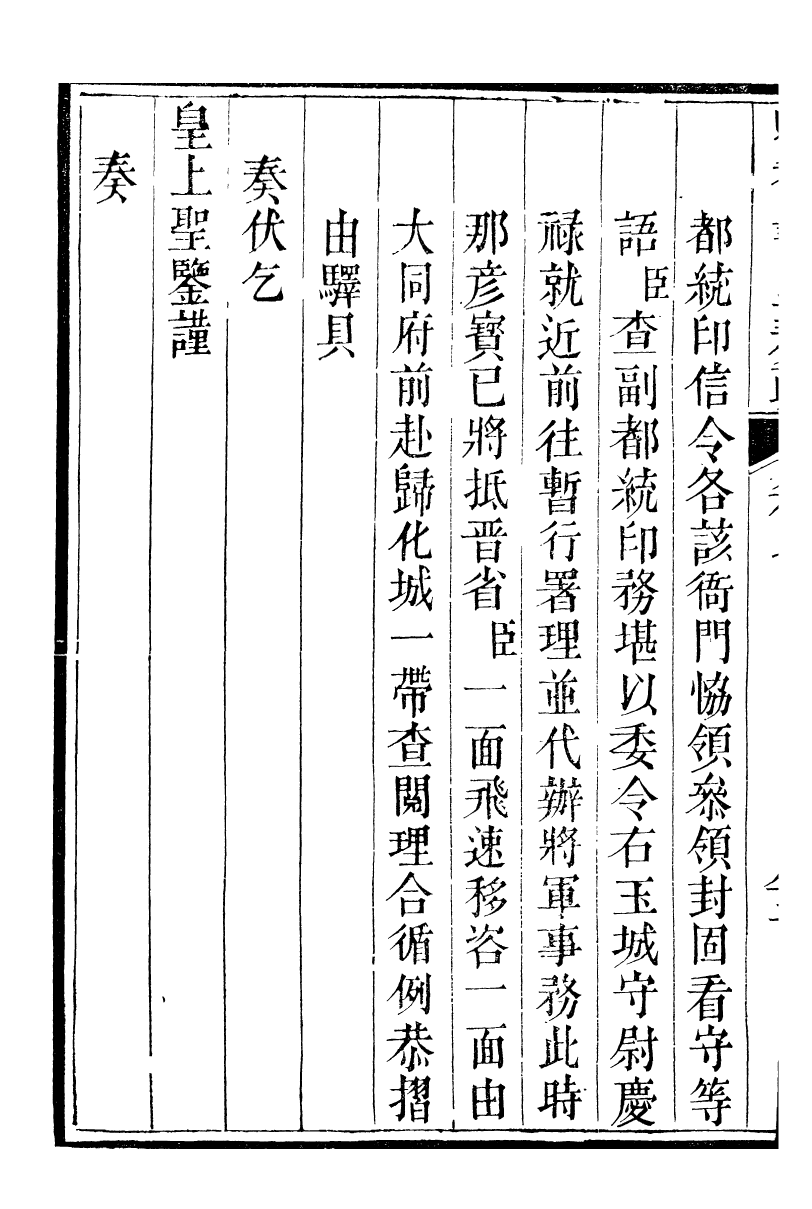 都統印信令各該衙門恊領叅領封固看守等
語臣查副都統印務堪以委令右玉城守尉慶
祿就近前往暫行署理並代辦將軍事務此時
那彥寳已將抵晋省臣一面飛速移咨一面由
大同府前赴歸化城一帶查閱理合循例恭摺
由驛具
奏伏乞
皇上聖鑒謹
奏